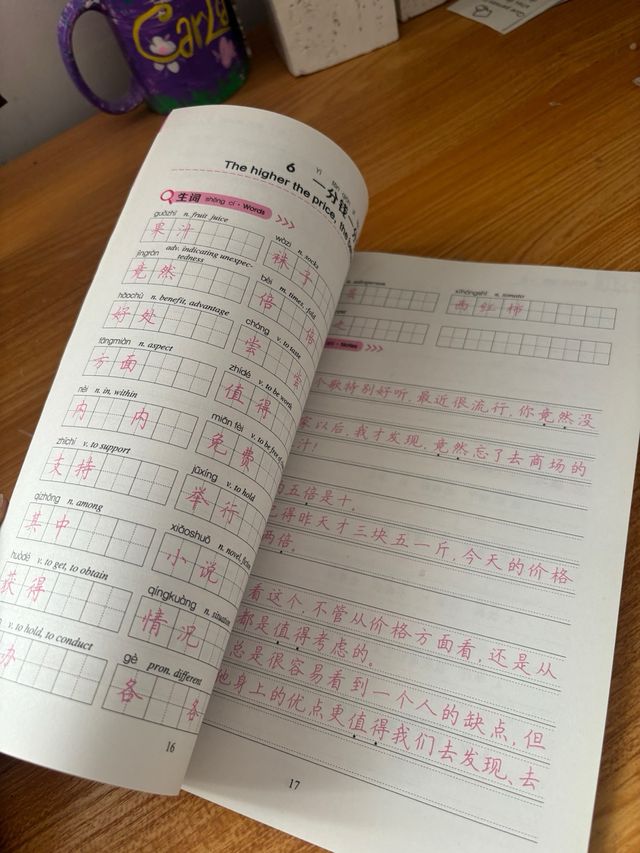 Carla
6
yī fēn qián yì
一分钱一
The higher the price, the
生词 shēng cí · Words
guǒzhī n. fruit juice
果汁
wàzi n. socks
袜子
jìngrán adv. indicating unexpec-
tedness
竟然
bèi n. times, -fold
倍 倍
hǎochù n. benefit, advantage
好处
cháng v. to taste
尝 尝
fāngmiàn n. aspect
方面
zhídé v. to be worth
值得
nèi n. in, within
内 内
miǎn fèi v. to be free
免费
zhīchí v. to support
支持
jǔxíng v. to hold
举行
qízhōng n. among
其中
xiǎoshuō n. novel, fiction
小说
huòdé v. to get, to obtain
获得
qíngkuàng n. situation
情况
v. to hold, to conduct
办
gè pron. different
各 各
16
n. salesperson
xīhóngshì n. tomato
西红柿
· Notes
个歌特别好听,最近很流行,你竟然没
家以后,我才发现,竟然忘了去商场的
汁!
的五倍是十。
记得昨天才三块五一斤,今天的价格
两倍。
看这个,不管从价格方面看,还是从
都是值得考虑的。
总是很容易看到一个人的缺点,但
他身上的优点更值得我们去发现、去
17